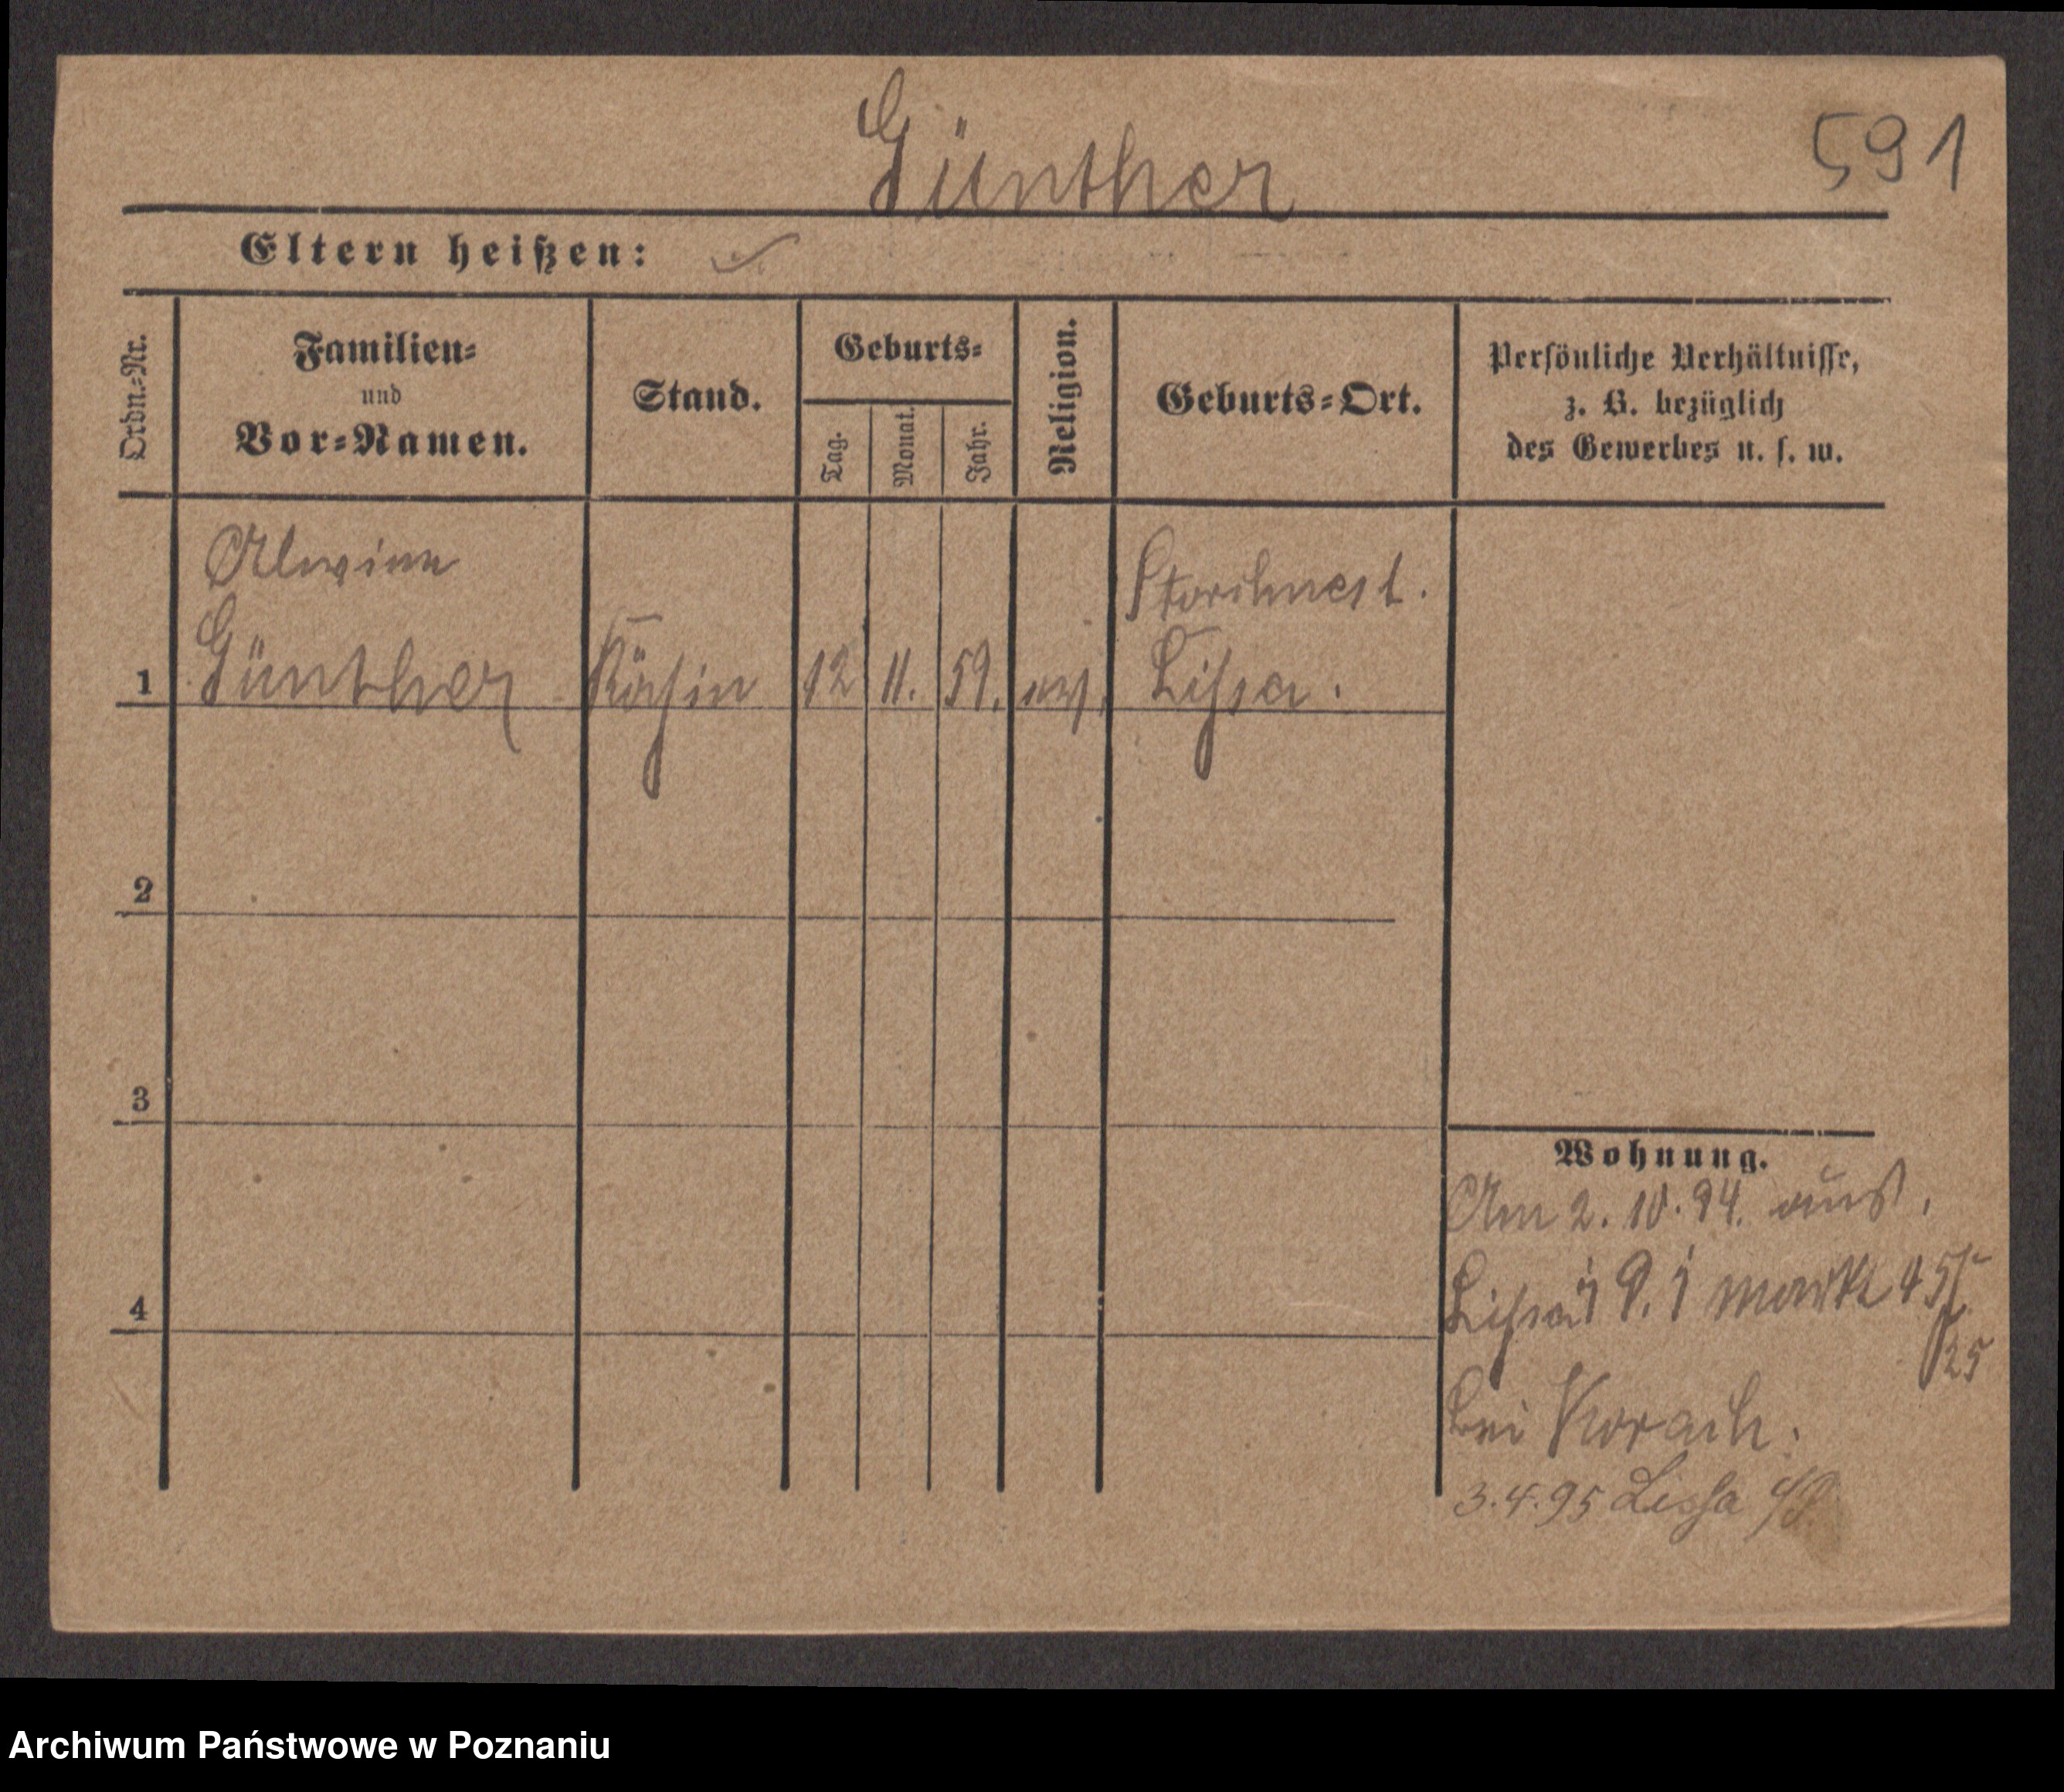 Günther
591
Eltern heißen:
Ordn.-Nr.
Familien-
und
Vor-Namen.
Stand.
Geburts-
Tag.
Monat.
Jahr.
Religion.
Geburts-Ort.
Persönliche Verhältnisse,
z. B. bezüglich
des Gewerbes u. s. w.
Alwine Storchnest.
1 Günther Köchin 12 11. 59. ev. Lissa.
2
3
4
Wohnung.
Am 2. 10. 94. aus
Lissa Markt 45
25
bei Korach.
3.4.95 Lissa
Archiwum Państwowe w Poznaniu